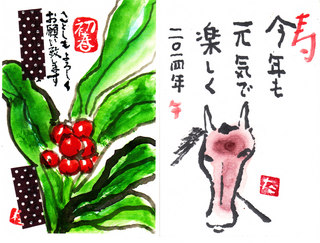 初春
ことしも よろしく
お願い致します
寿
今年も
元気で
楽しく
二〇一四年 午